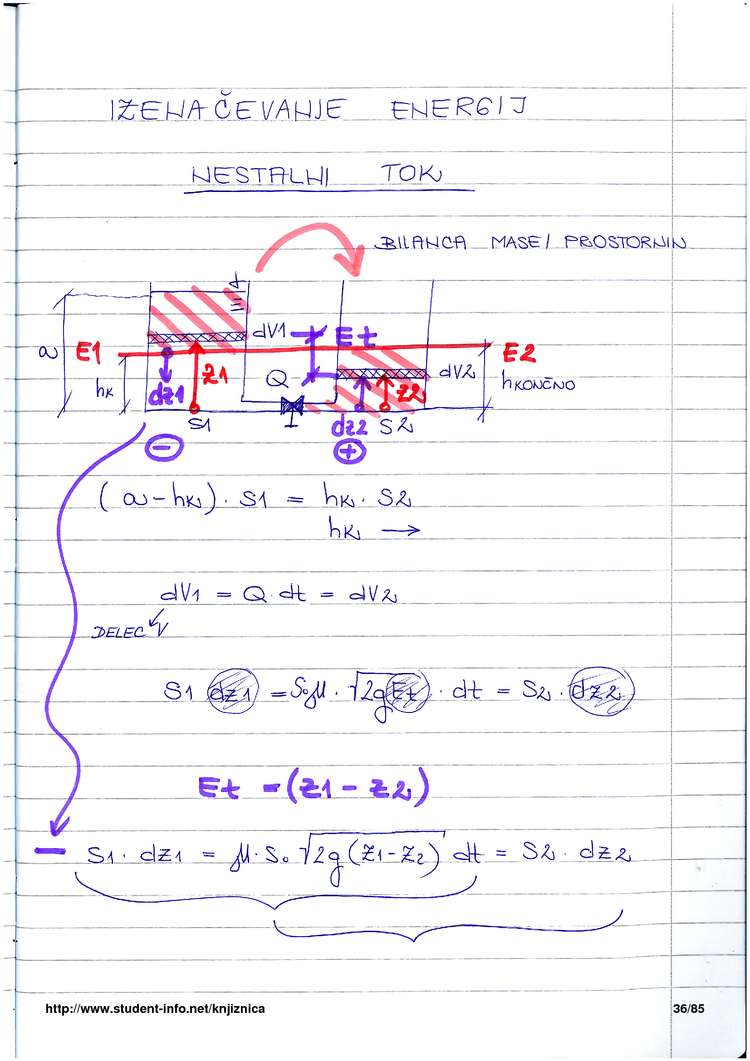 IZENAČEVANJE ENERGIJ
NESTALNI TOK
BILANCA MASE/PROSTORNIN
a E1 hK dz1 z1 S1 dV1 Q Et dz2 z2 S2 dV2 E2 hKONČNO
- +
(a-hK)·S1 = hK·S2
hK →
dV1 = Q·dt = dV2
DELEC V
S1 dz1 = S₀μ·√2gEt·dt = S2·dz2
Et = (z1-z2)
- S1·dz1 = μ·S₀√2g(z1-z2) dt = S2·dz2
http://www.student-info.net/knjiznica 36/85